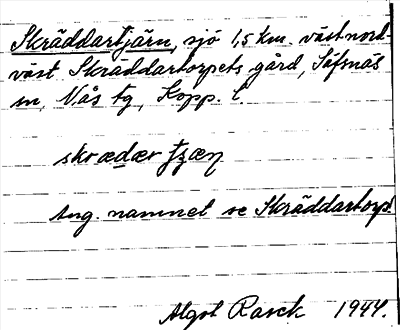 Skräddartjärn, sjö 1,5 km. västnord-
väst Skräddartorpets gård, Säfsnäs
sn, Nås tg, Kopp. l.
skrædær
Ang. namnet se Skräddartorp.
Algot Rasck 1944.